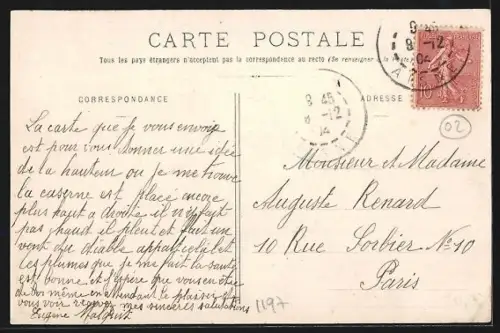 CARTE POSTALE
Tous les pays étrangers n'acceptent pas la correspondance au recto (Se renseigner à la Poste)
CORRESPONDANCE
ADRESSE
9 45
8 -12
04
9 45
8 -12
04
10
02
La carte que je vous envoie
est pour vous donner une idée
de la hauteur ou je me trouve
la caserne est placé encore
plus haut a droite il n'y fait
pas chaud il pleut et fait un
vent du diable
ces plumes que je me fait la santé
est bonne et j'éspère que vous en ête
de vos même en attendant le plaisir de
vous voir recever mes sincères salutations
Eugène
Monsieur et Madame
Auguste Renard
10 Rue Sorbier No 10
Paris
1197